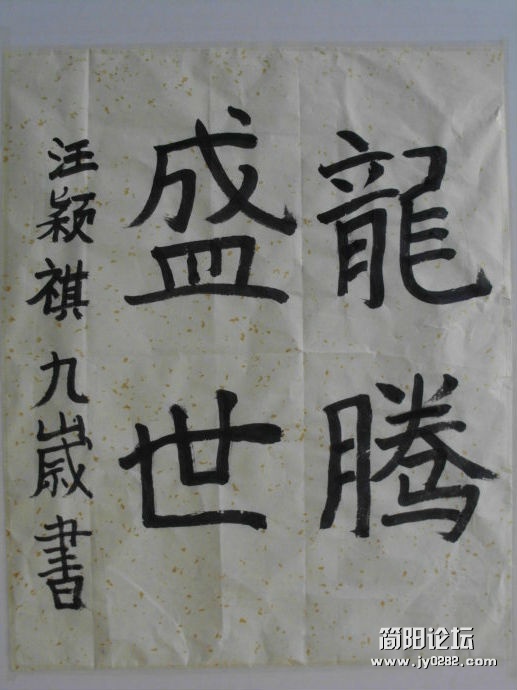 龍腾
盛世
汪颖祺九歲書
简阳论坛
www.jy0282.com